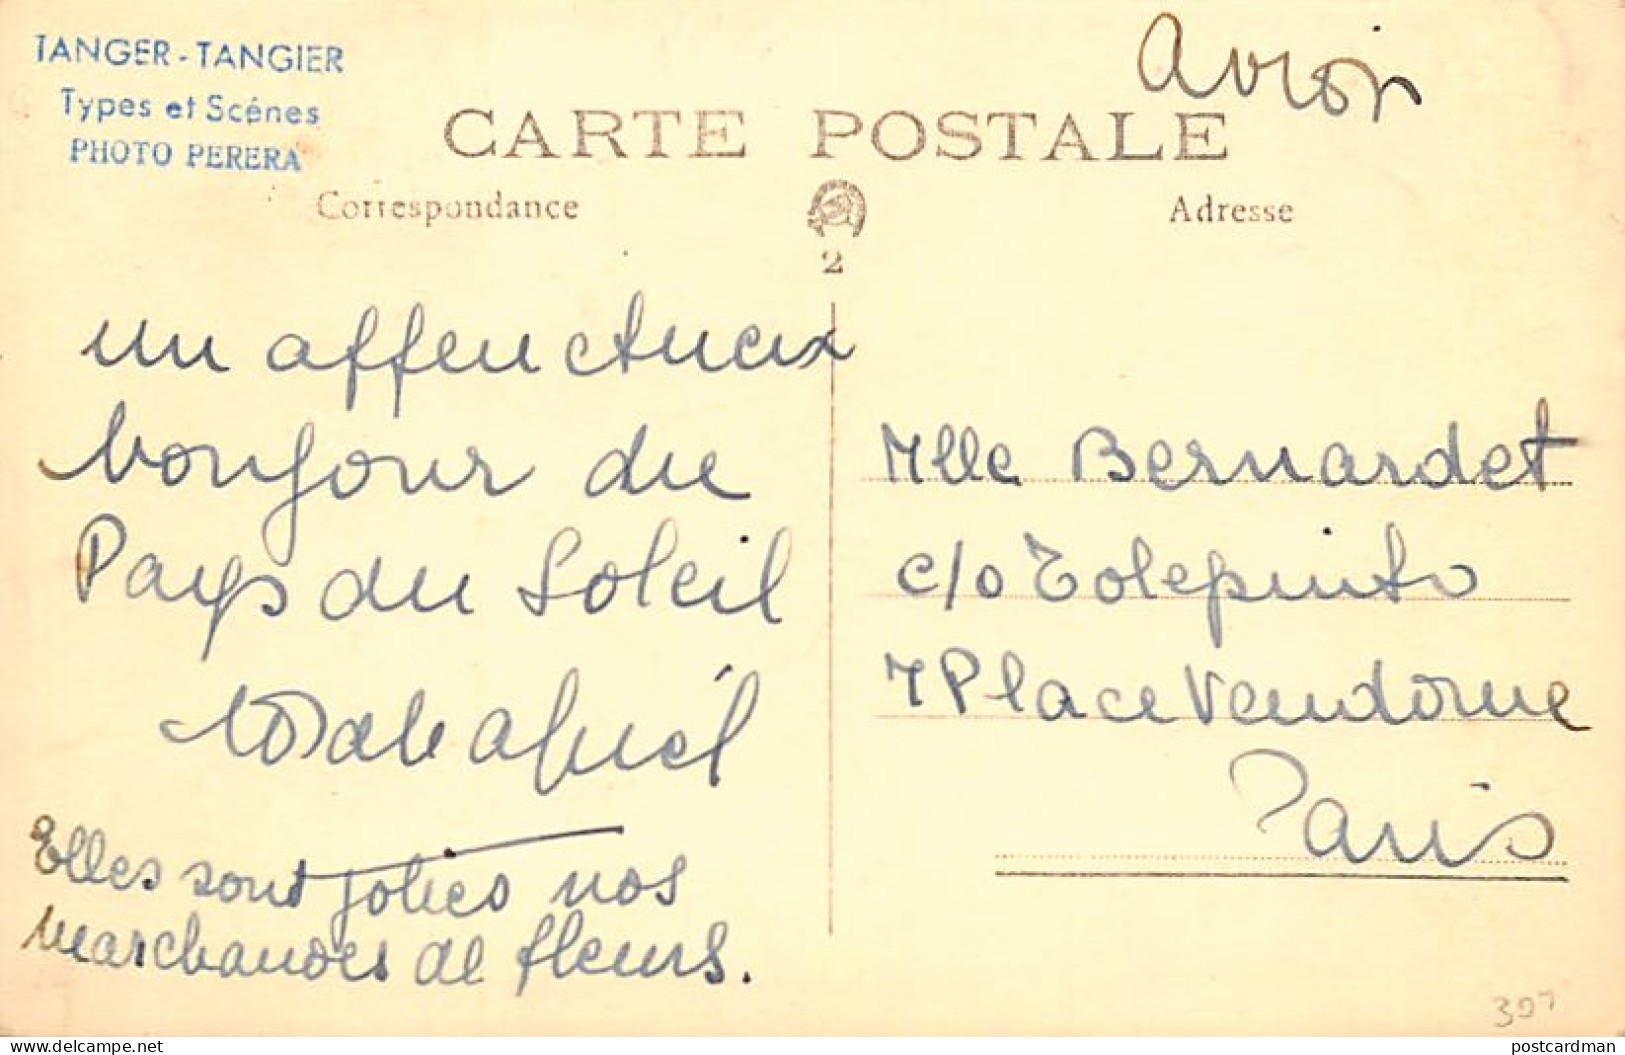 TANGER - TANGIER
Types et Scénes
PHOTO PERERA
Avion
CARTE POSTALE
Correspondance
Adresse
2
un affectueux
bonjour du
Pays du Soleil
Elles sont jolies nos
marchandes de fleurs.
Mlle Bernardet
c/o Tolepinto
7 Place Vendome
Paris
307
www.delcampe.net
postcardman